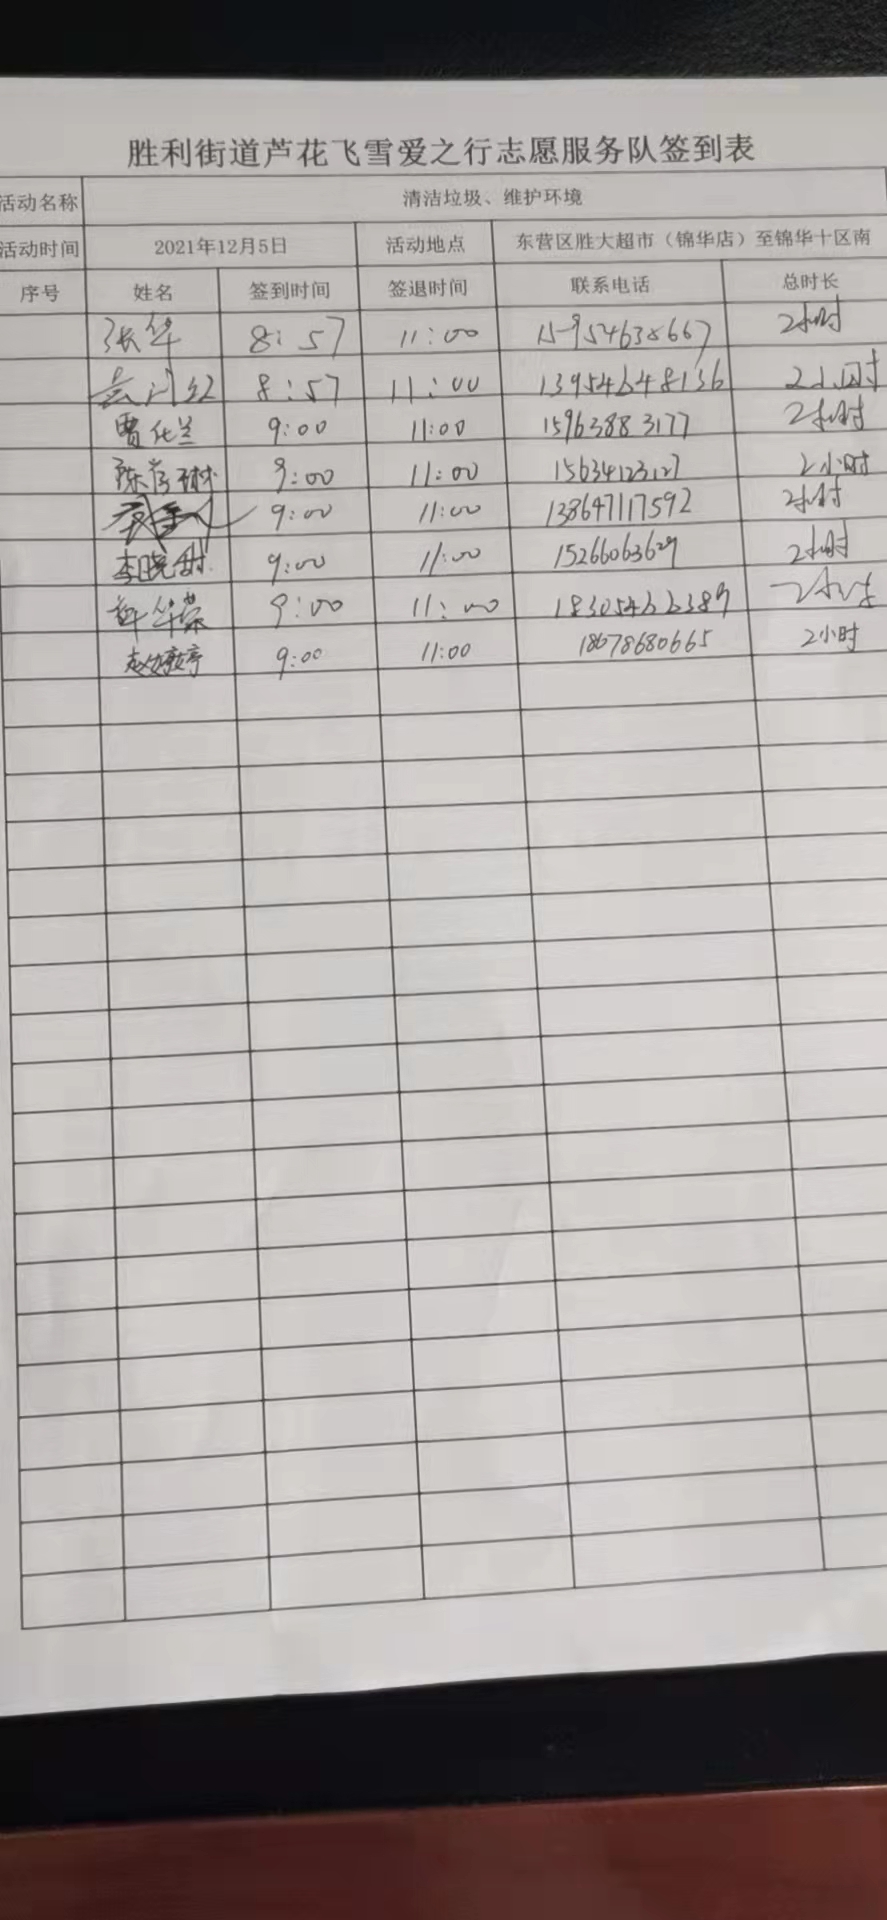 胜利街道芦花飞雪爱之行志愿服务队签到表
活动名称 清洁垃圾、维护环境
活动时间 2021年12月5日 活动地点 东营区胜大超市（锦华店）至锦华十区南
序号 姓名 签到时间 签退时间 联系电话 总时长
张华 8:57 11:00 15954638667 2小时
8:57 11:00 13954648136 2小时
曹化兰 9:00 11:00 15963883177 2小时
9:00 11:00 15634123127 2小时
9:00 11:00 138647117592 2小时
李晓甜 9:00 11:00 15266063629 2小时
9:00 11:00 2小时
赵婷婷 9:00 11:00 18678680665 2小时